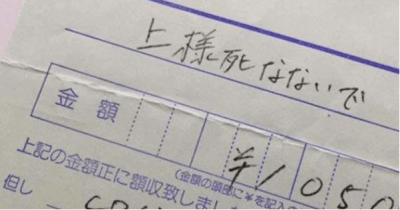 上様死なないで
金額 ¥1050
(金額の頭部に¥を記入の
上記の金額正に領収致しまし
但し